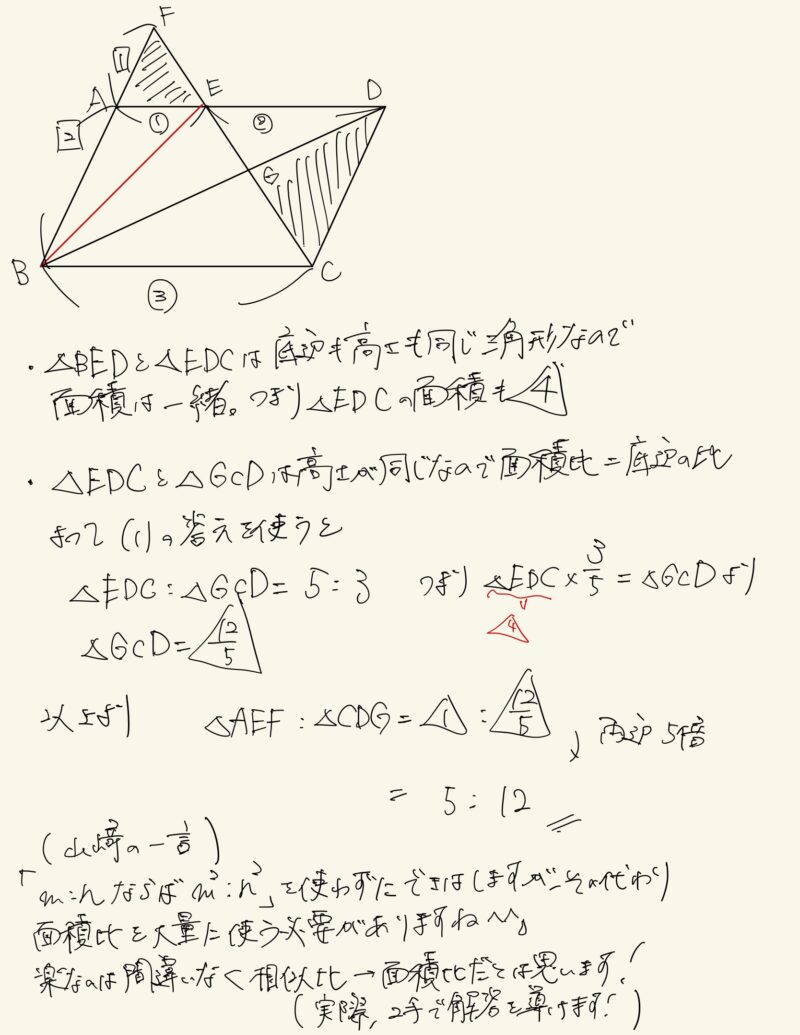 F
1
A
E
D
2
①
②
G
B
C
③
・△BEDと△EDCは底辺も高さも同じ三角形なので
面積は一緒。つまり△EDCの面積も4
・△EDCと△GCDは高さが同じなので面積比=底辺の比
よって(1)の答えを使うと
△EDC:△GCD=5:3 つまり △EDC×3/5=△GCDより
4
△GCD=12/5
以上より △AEF:△CDG=1:12/5
両辺5倍
= 5:12
(山﨑の一言)
「m:nならばm²:n²」を使わずにできはしますが、その代わり
面積比を大量に使う必要がありますね〜。
楽なのは間違いなく相似比→面積比だとは思います!
(実際、2手で解答を導けます!)